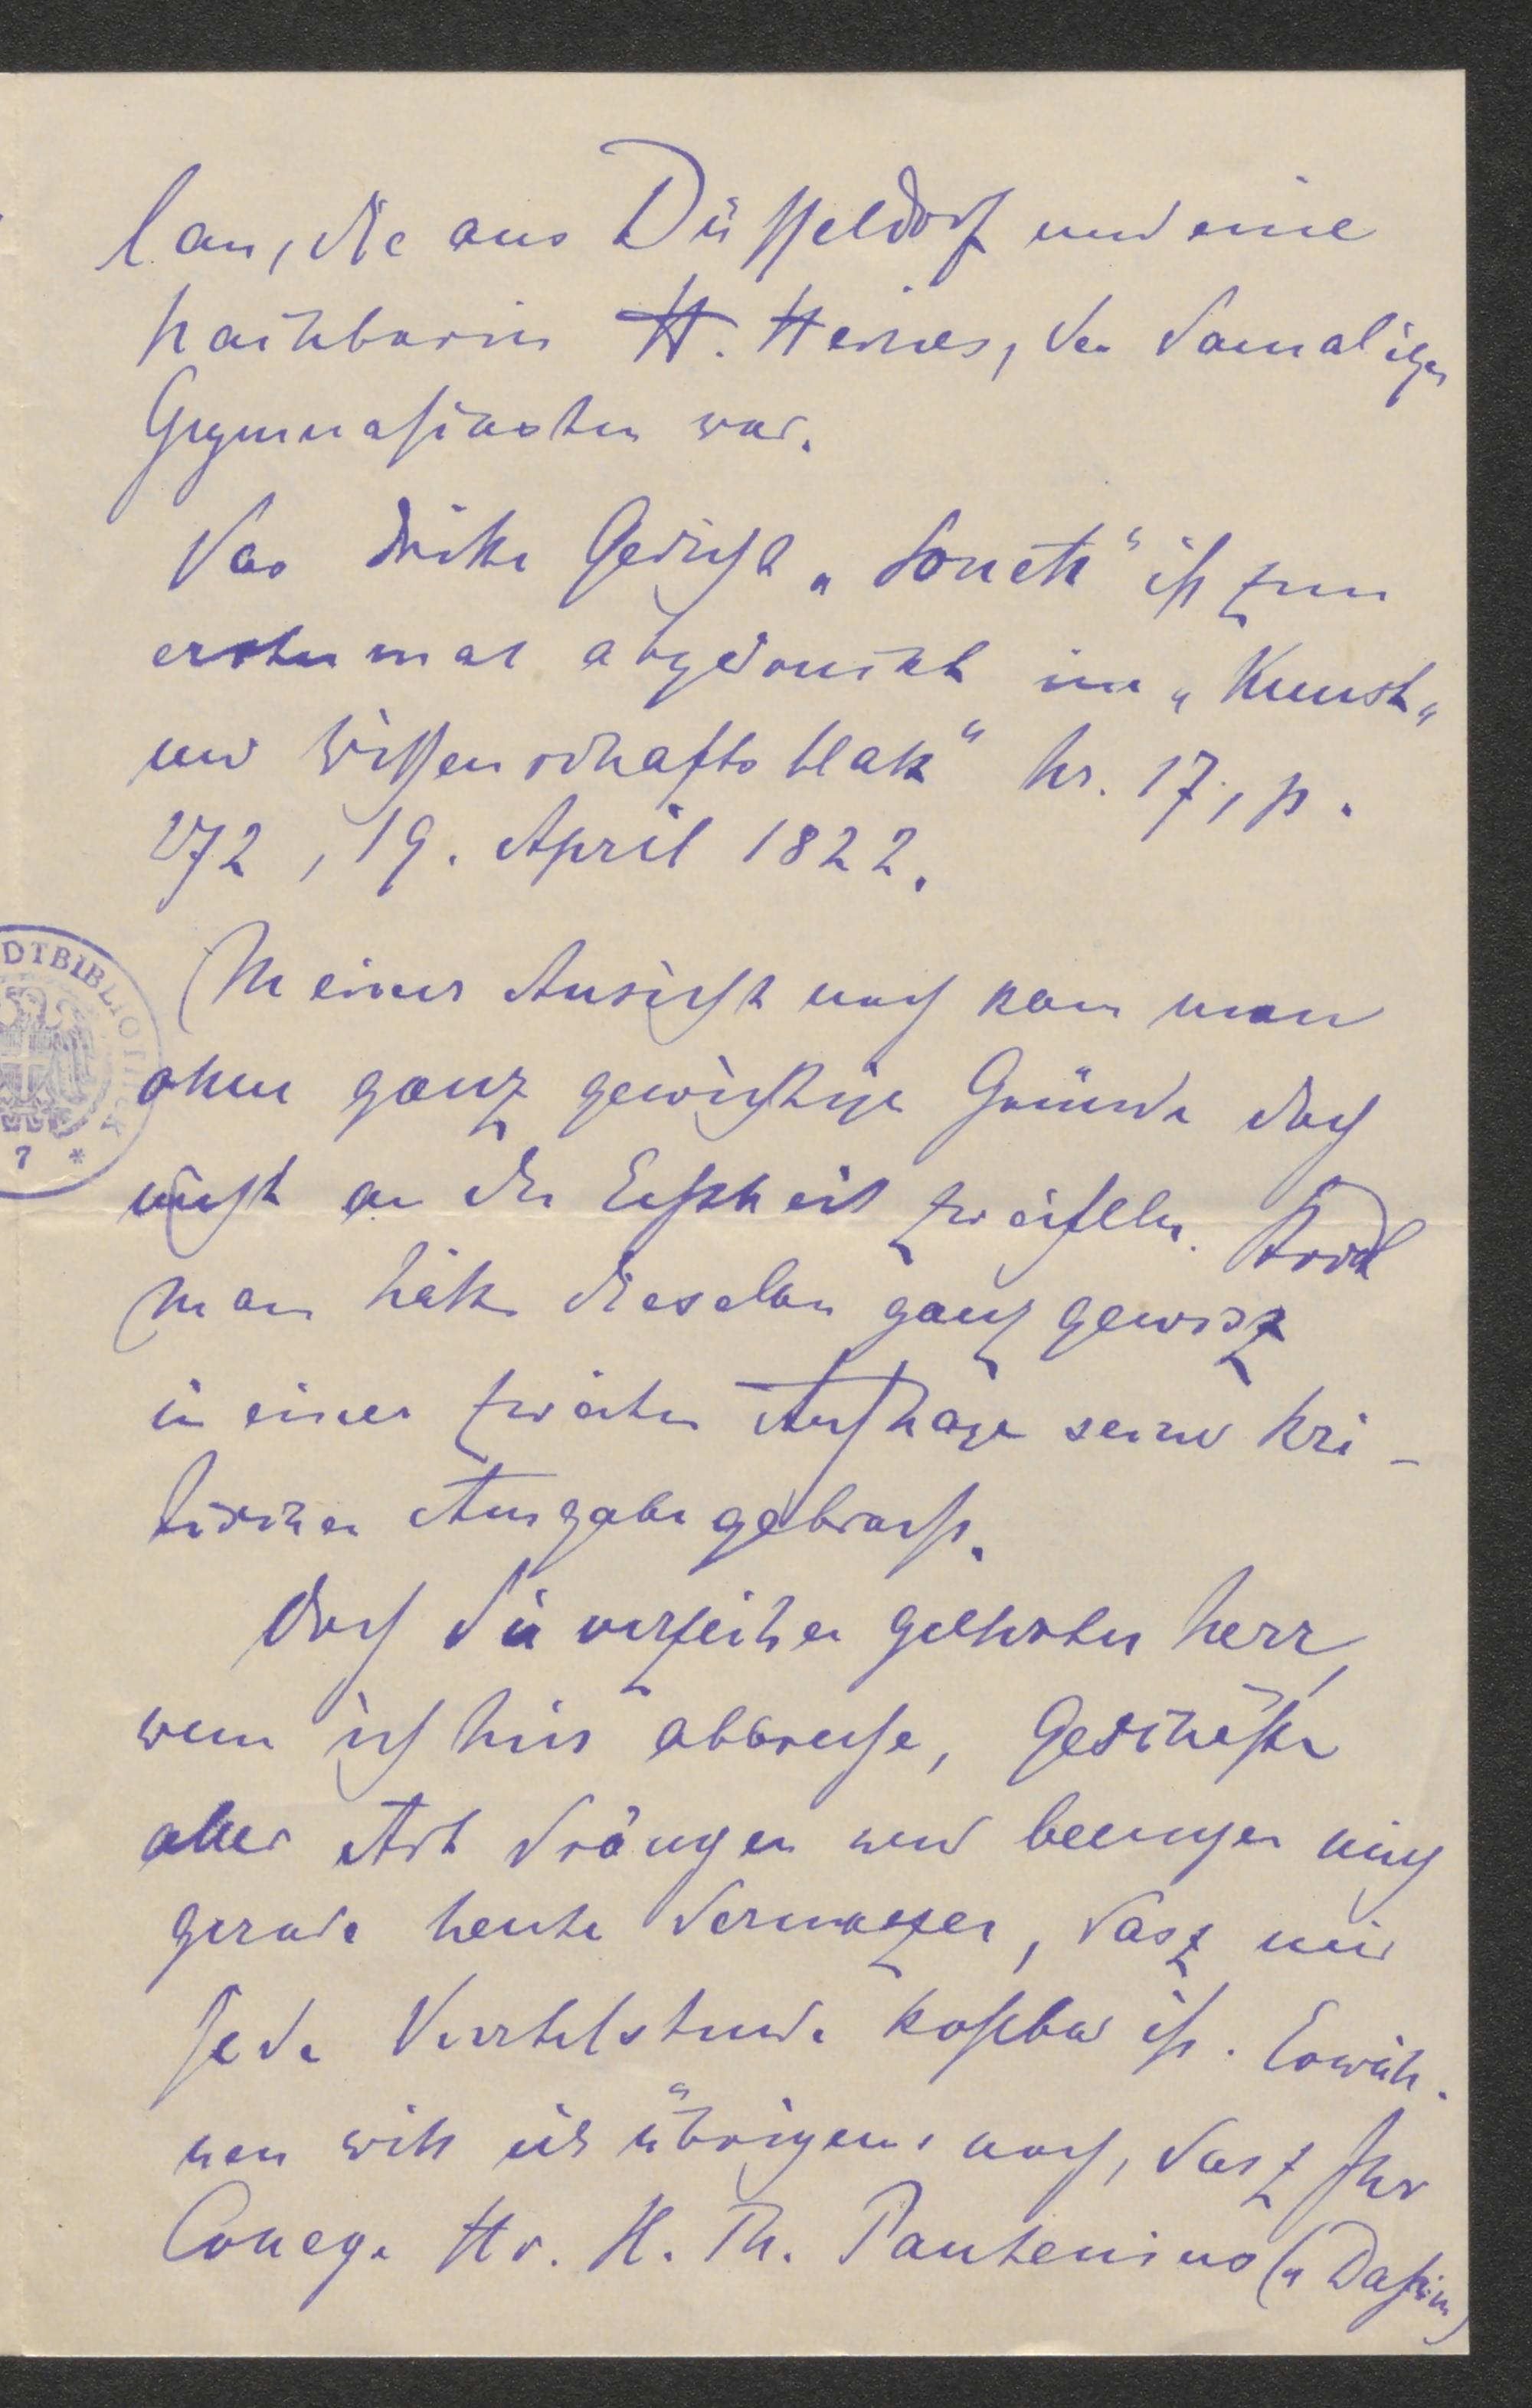 lan, die aus Düsseldorf und eine
Nachbarin H. Heines, des damaligen
Gymnasiasten war.
Das dritte Gedicht „Sonett“ ist zum
erstenmal abgedruckt im „Kunst„
und Wissenschaftsblatt“ Nr. 17, p.
272, 19. April 1822.
Meiner Ansicht nach kan man
ohne ganz gewichtige Gründe doch
nicht an der Echtheit zweifeln.
man hätte dieselben ganz gewisz
in einer zweiten Auflage seiner kri-
tischen Ausgabe gebracht.
Doch Sie verzeihen geehrter Herr,
wenn ich hier abbreche, Geschäfte
aller Art drängen und beengen mich
gerade heute dermaszen, dasz mir
jede Viertelstunde kostbar ist. Erwäh-
nen will ich übrigens noch, dasz Ihr
College Hr. H. Th. Pantenius („
DTBIBLIOTHEK
7 *